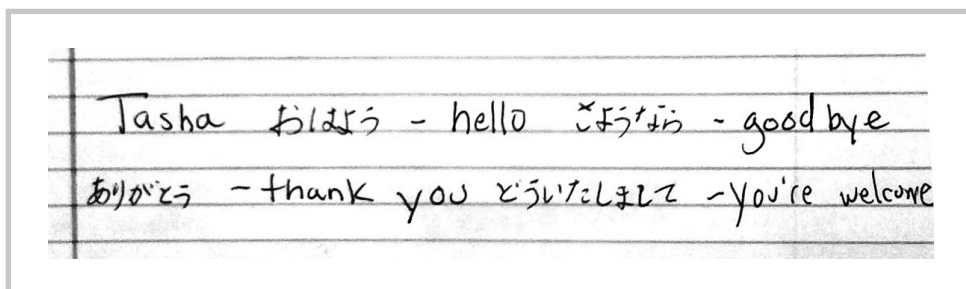 Tasha おはよう - hello さようなら - good bye
ありがとう - thank you どういたしまして - you're welcome